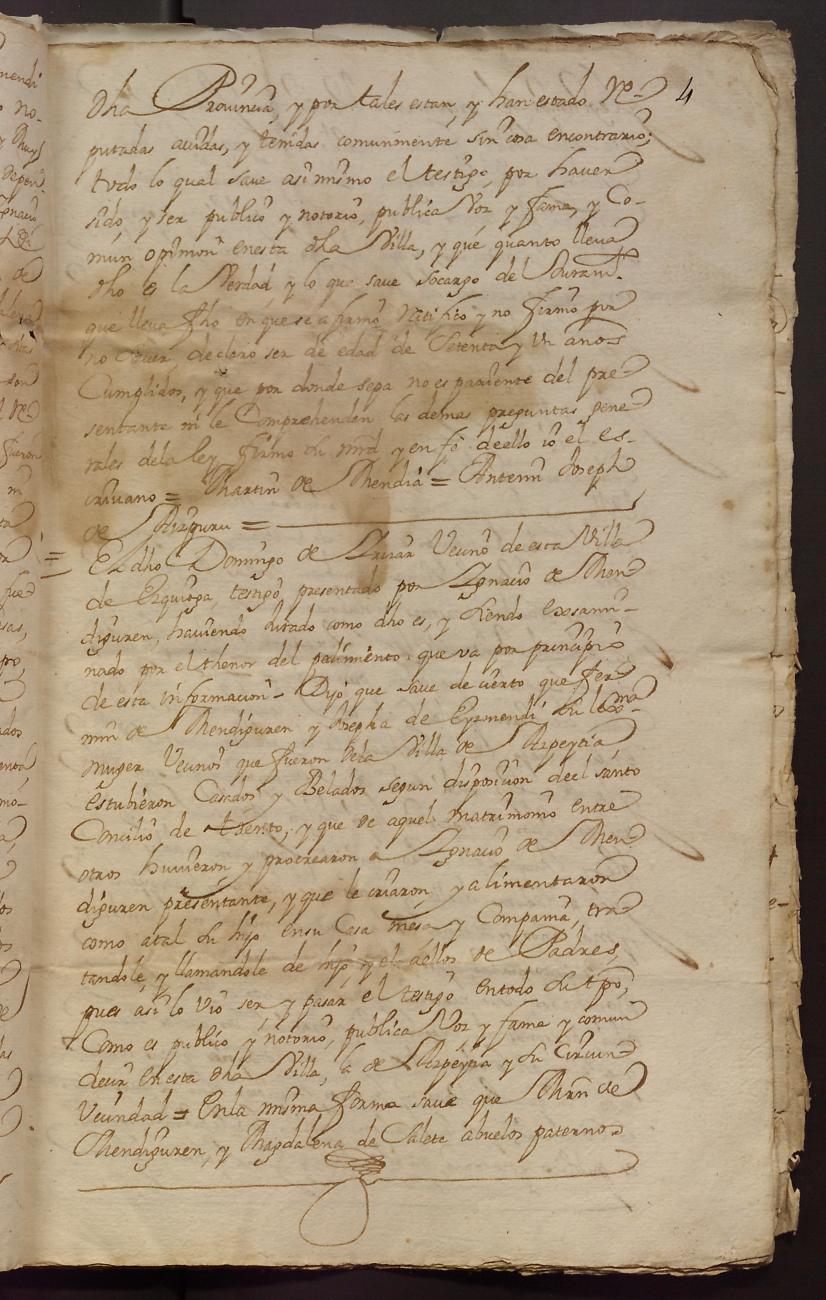 dha Provincia, y por tales estan, y han estado re- 4
putadas avidas, y tenidas comunmente sin cosa encontrario;
todo lo qual save asi mismo el testigo, por haver
sido y ser publico y notorio, publica Voz y fama, y Co-
mun opinion enesta dha Villa, y que quanto lleva
dho es la Verdad y lo que save socargo del Juramto.
que lleva fho en que se afirmo ratifico y no firmo por
no saver declaro ser de edad de Setenta y Un años
Cumplidos, y que por donde sepa no es pariente del pre
sentante ni le Comprehenden las demas preguntas gene
rales dela ley firmo su mrd y en fe deello io el es-
crivano = Martin de Mendia = Antemi Joseph
de Aizpuru =
= El dho Domingo de Vecino de esta Villa
de Ezquioga, testigo presentado por Ygnacio de Men
diguren, haviendo Jurado como dho es, y siendo exsami-
nado por el thenor del pedimiento que va por principio
de esta informacion - Dijo que save de cierto que Fer
min de Mendiguren y Josepha de Eyzmendi su lexma
muger Vecinos que fueron dela Villa de Azpeytia
estubieron Casados y Belados segun disposicion deel santo
Concilio de trento, y que de aquel matrimonio entre
otros huvieron y procrearon a Ygnacio de Men
diguren presentante, y que le criaron y alimentaron
como atal su hijo ensu Casa mesa y Compania, tra
tandole, y llamandole de hijo, y el dellos de Padres,
pues asi lo vio ser y pasar el testigo entodo su tpo,
Como es publico y notorio, publica Voz y fama y comun
decir enesta dha Villa, la de Azpeytia y su Circun
Vecindad = Enla misma forma save que Mrn de
Mendiguren, y Magdalena de Salete abuelos paternos